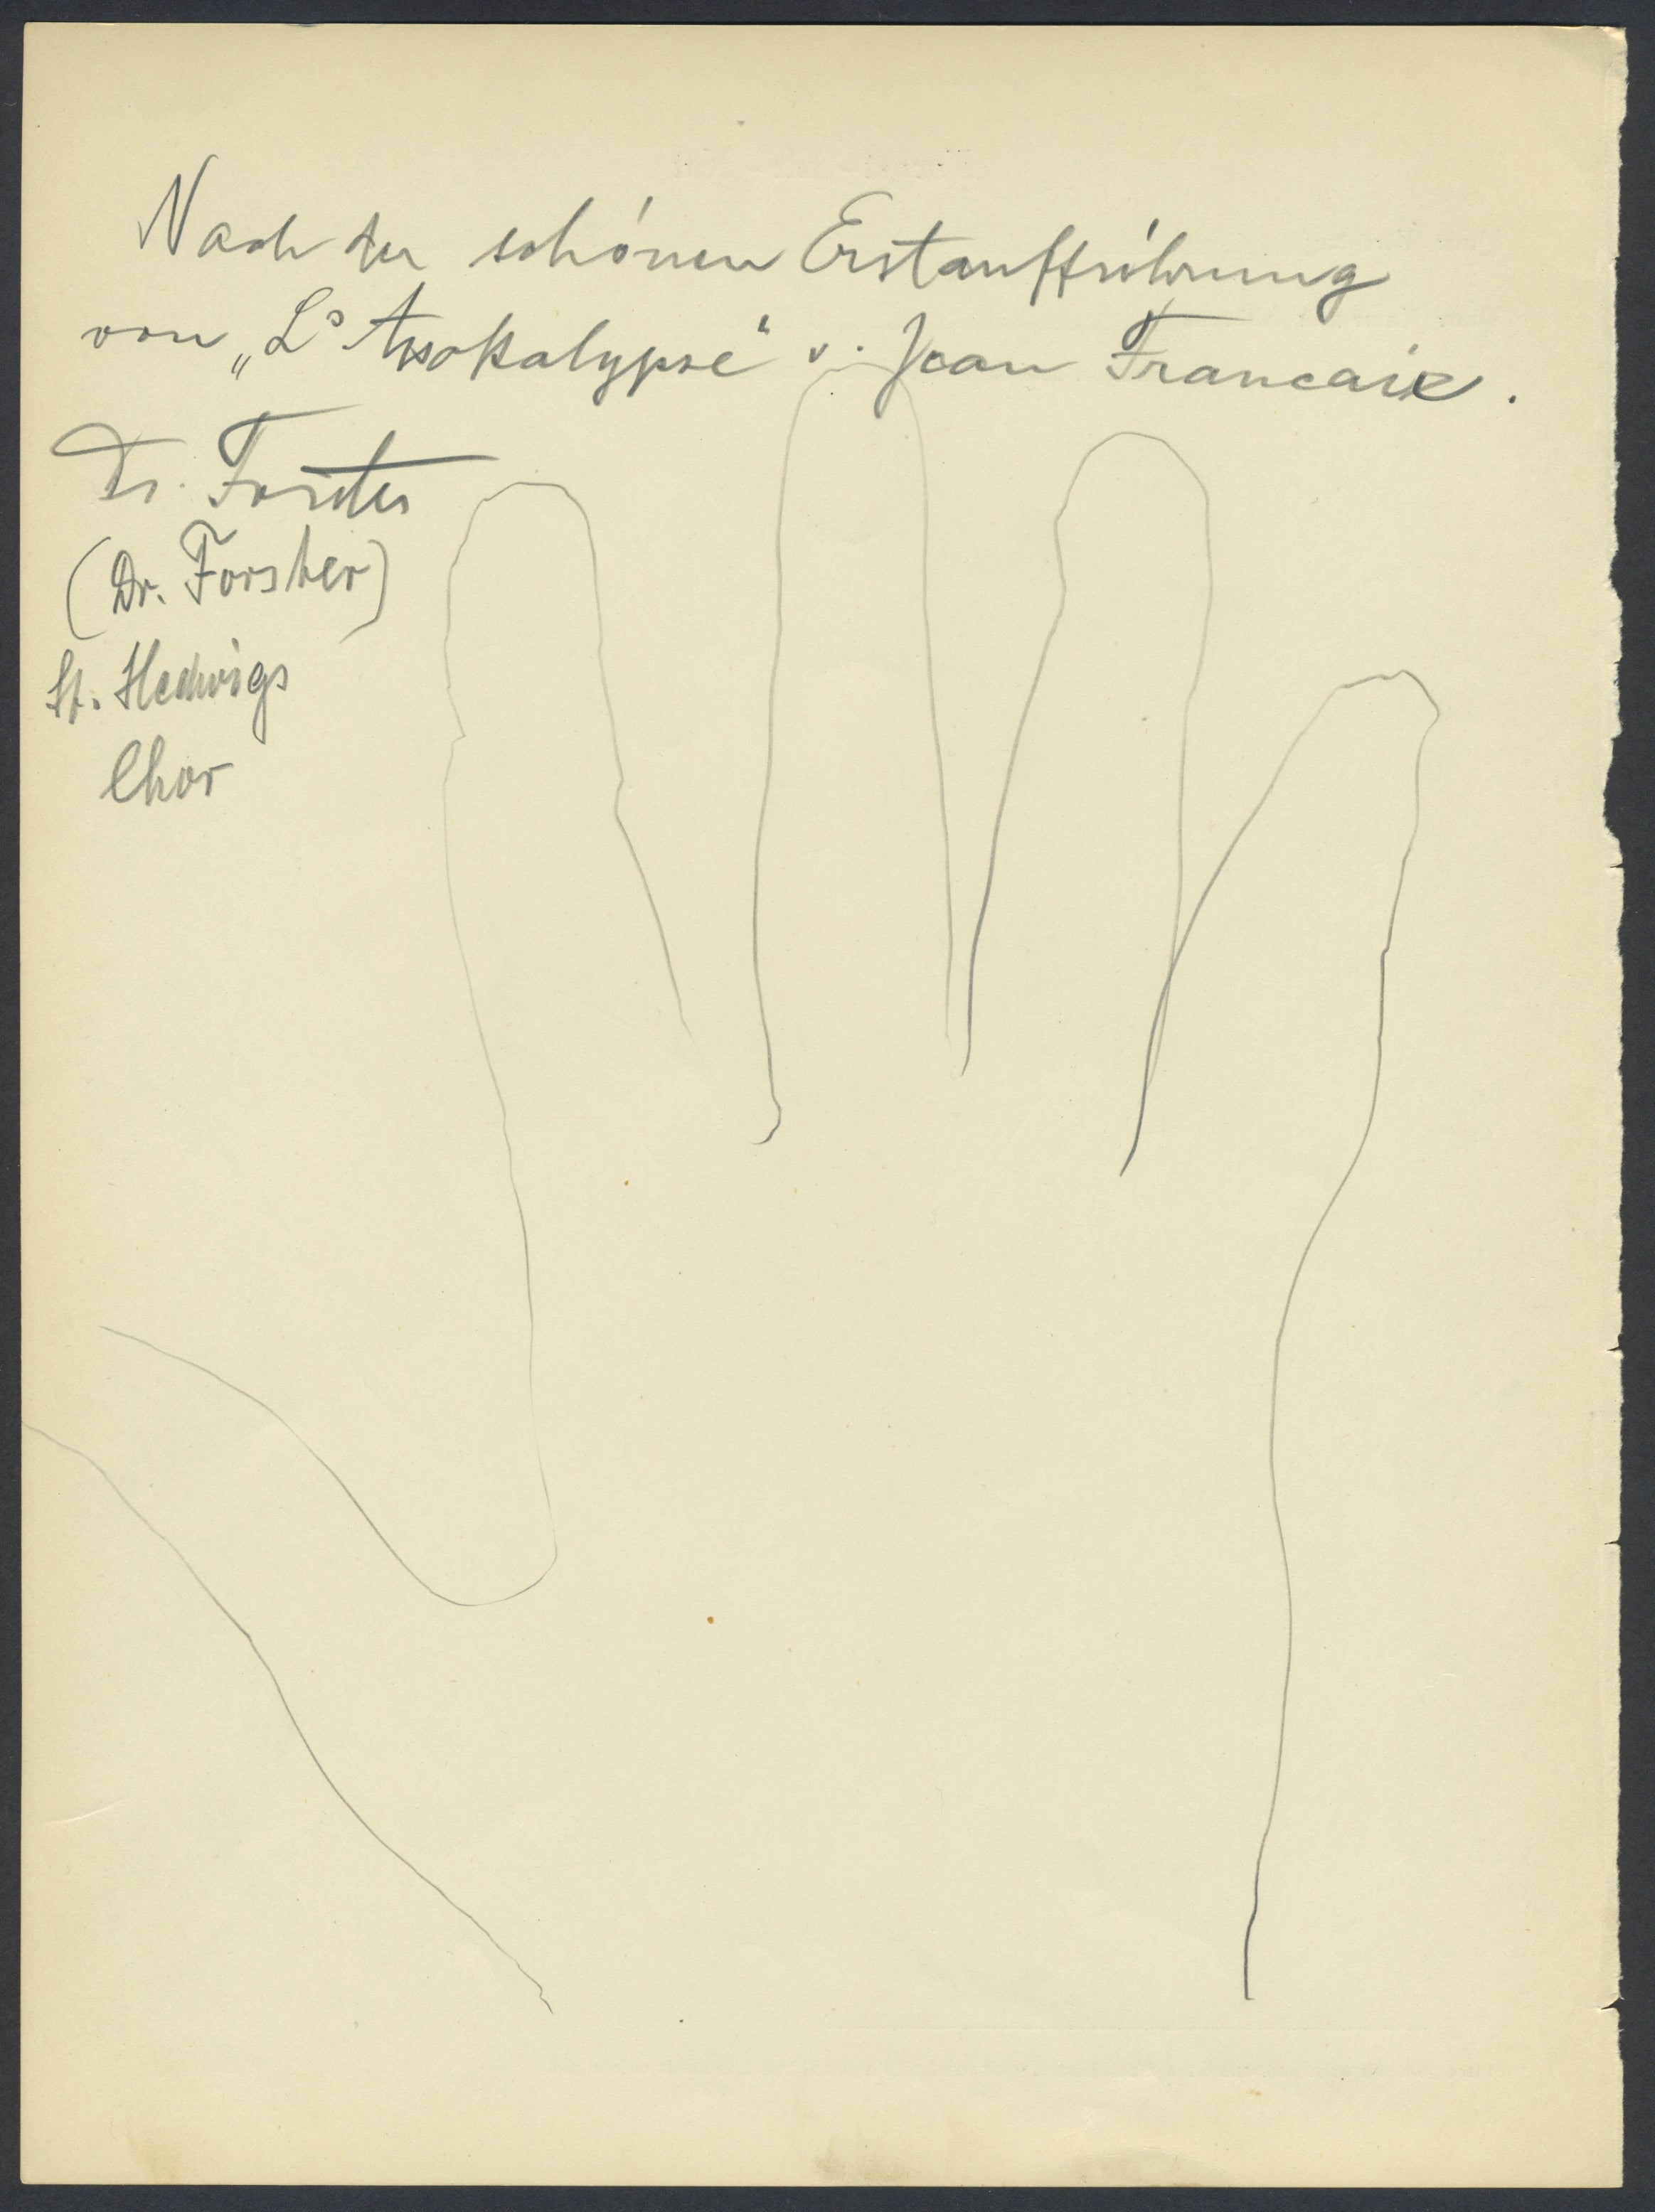 Nach der schönen Erstaufführung
von „L'Apokalypse“ v. Jean Francaix.
Dr. Forster
(Dr. Forster)
St. Hedwigs
Chor